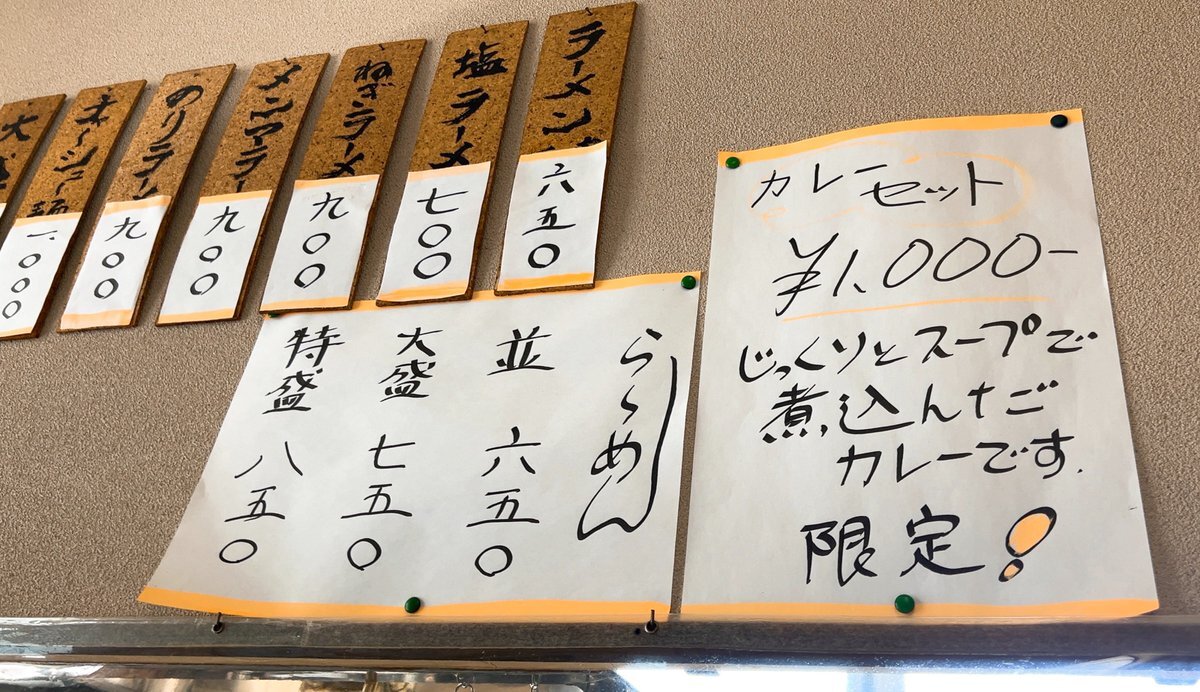 ラーメン
六五〇
塩ラーメ
七〇〇
ねぎラーメ
九〇〇
メンマラー
九〇〇
のりラー
九〇〇
一、〇〇〇
大盛
らーめん
並 六五〇
大盛 七五〇
特盛 八五〇
カレーセット
¥1,000-
じっくりとスープで
煮込んだご
カレーです.
限定!